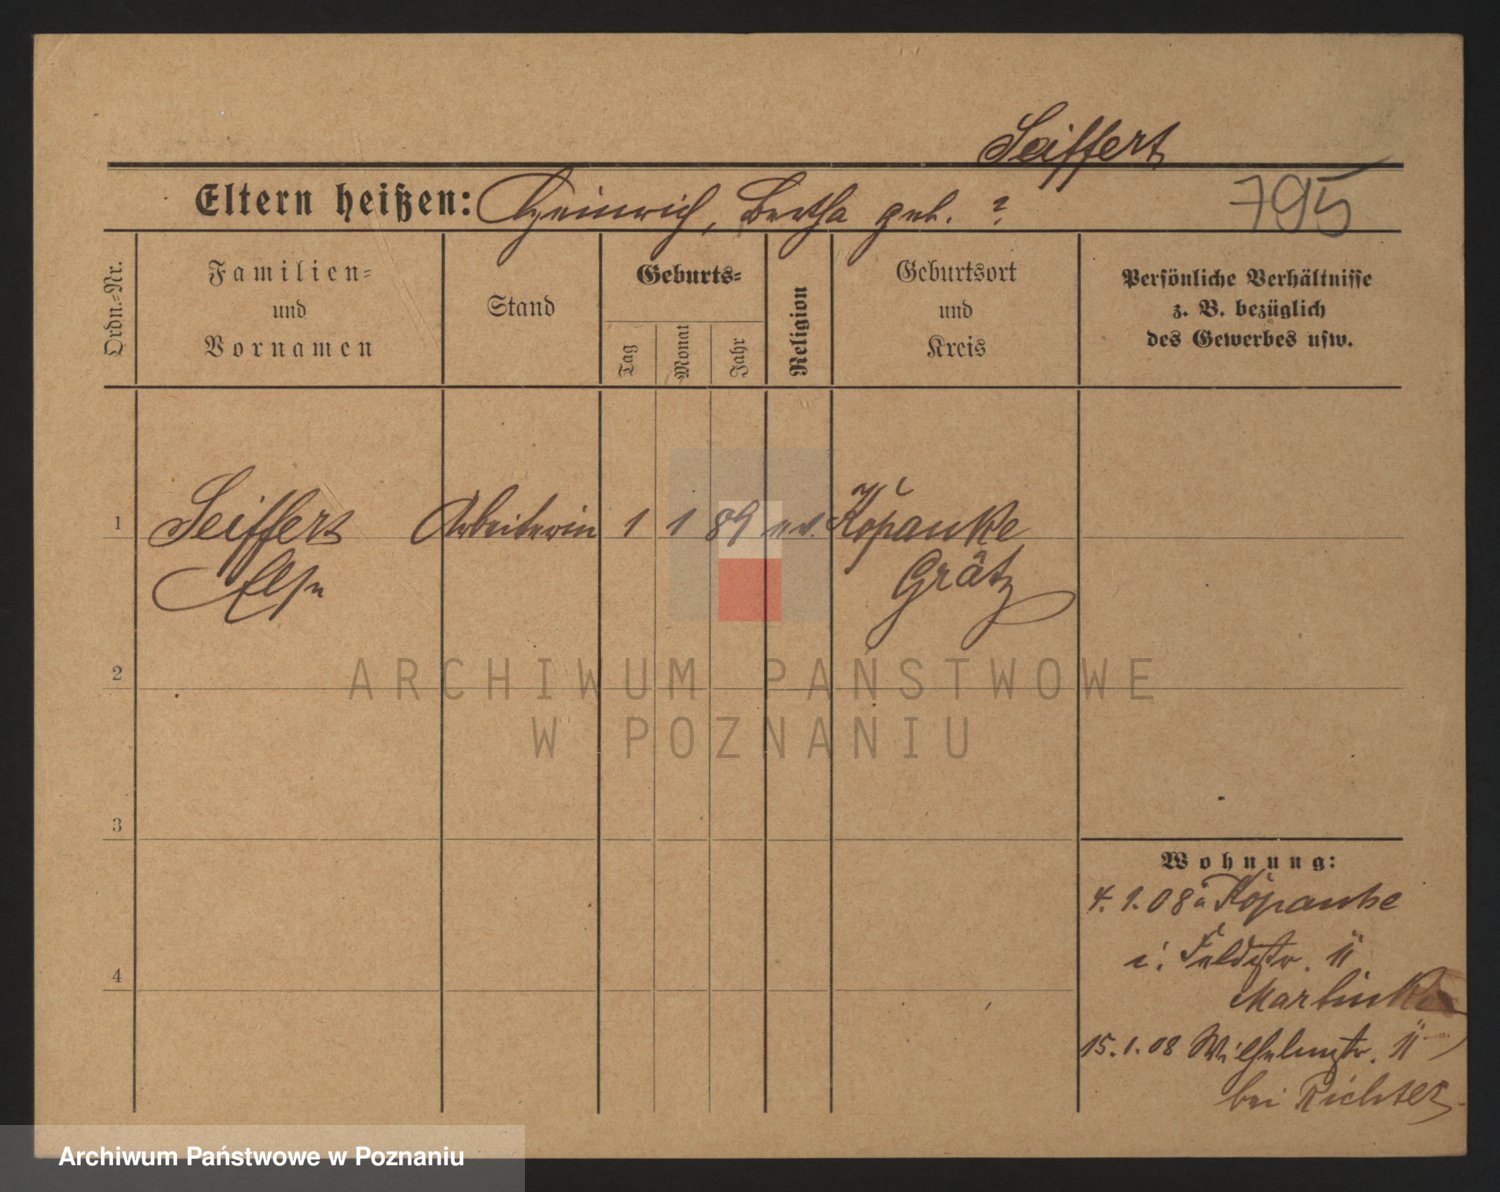 Seiffert
Eltern heißen: Heinrich, Bertha geb. ?
795
Ordn.-Nr.
Familien-
und
Vornamen
Stand
Geburts-
Tag
Monat
Jahr
Religion
Geburtsort
und
Kreis
Persönliche Verhältnisse
z. B. bezüglich
des Gewerbes usw.
1 Seiffert Arbeiterin 1 1 89 ev. Kopanke
Else Grätz
2
ARCHIWUM PAŃSTWOWE
W POZNANIU
3
Wohnung:
4. 1. 08 a Kopanke
i. Feldstr. 11
Martinke
4
15. 1. 08 Wilhelmstr. 11
bei Richter
Archiwum Państwowe w Poznaniu